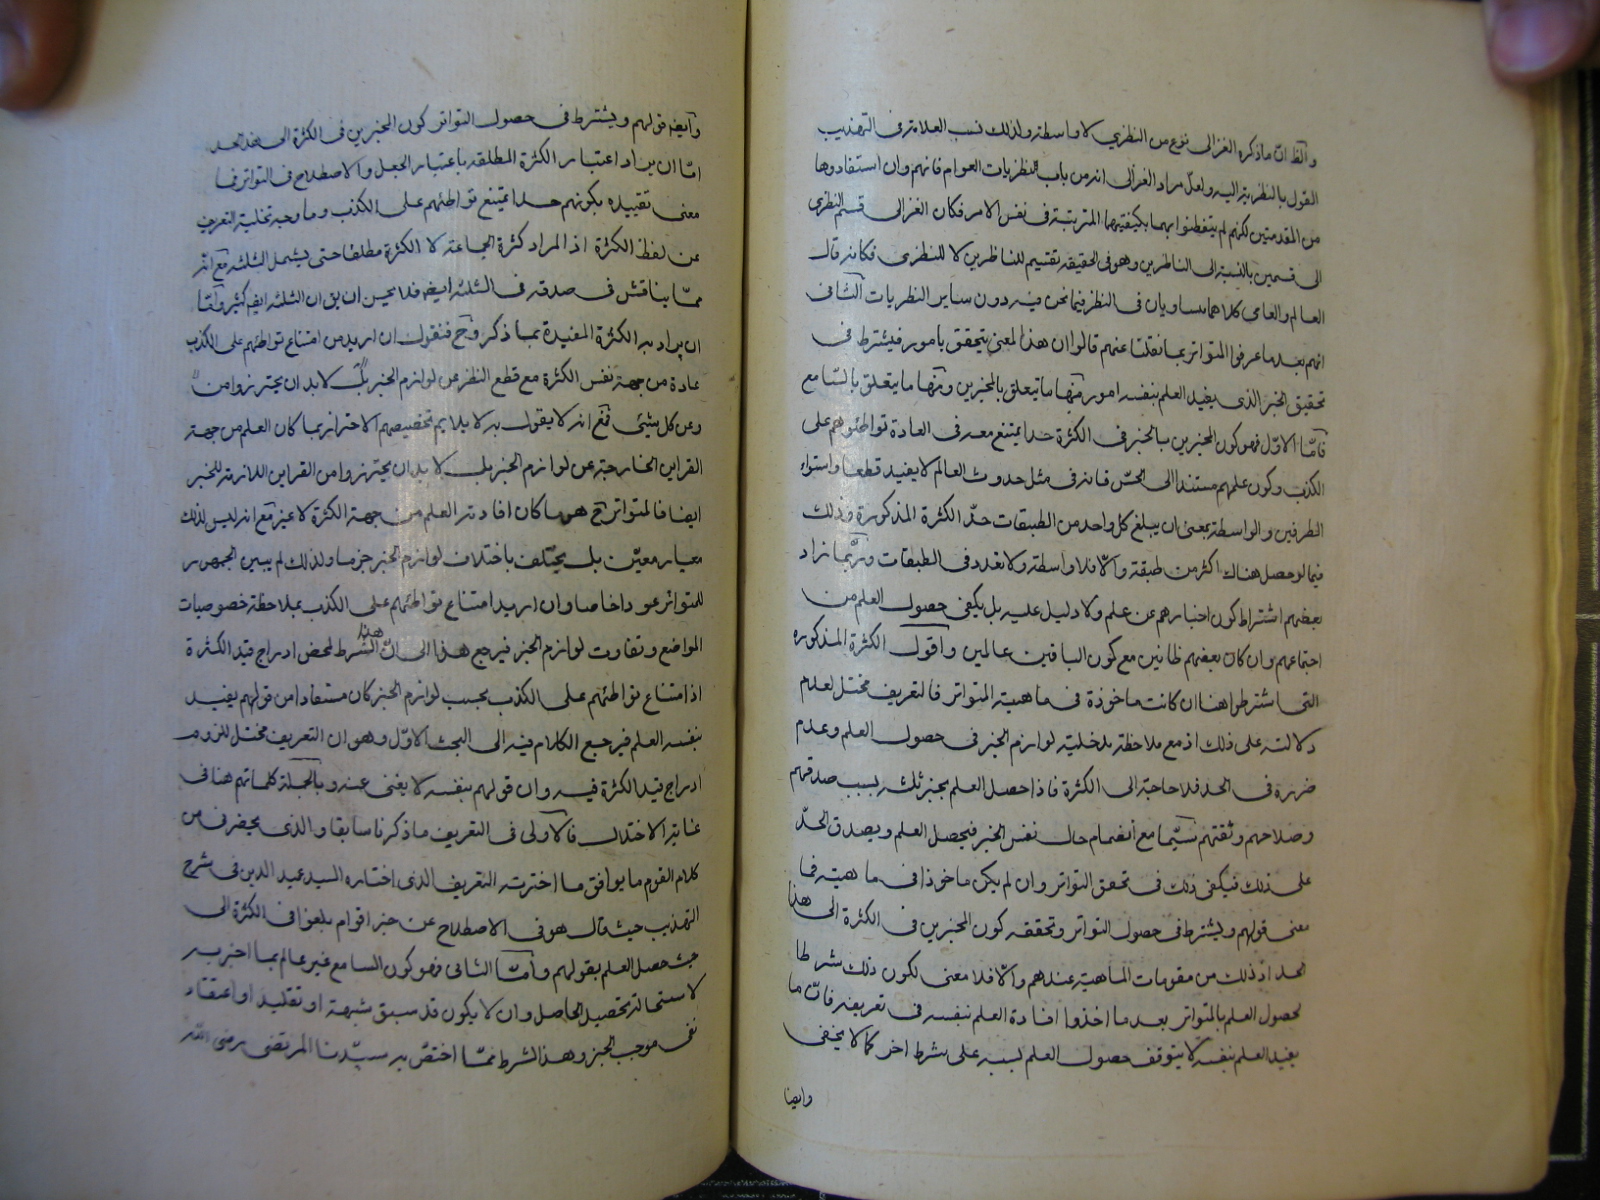 والظ ان ما ذكره الغزالى نوع من النظرى لا واسطة ولذلك نسب العلامة فى التهذيب
القول بالنظرية اليه ولعل مراد الغزالى انه من باب النظريات العوام فانهم وان استفادوها
من المقدمتين لكنهم لم يتفطنوا بهما بكيفيتهما المترتبة فى نفس الامر فكان الغزالى قسم النظرى
الى قسمين بالنسبة الى الناظرين وهو فى الحقيقة تقسيم للناظرين لا للنظرى فكانه قال
العالم والعامى كلاهما متساويان فى النظر فيما نحن فيه دون ساير النظريات الثانى
انهم بعد ما عرفوا المتواتر بما نقلنا عنهم قالوا ان هذا المعنى يتحقق بامور فيشترط فى
تحقيق الخبر الذى يفيد العلم بنفسه امور منها ما يتعلق بالمخبرين ومنها ما يتعلق بالسامع
فاما الاول فهو كون المخبرين بالخبر فى الكثرة حدا يمتنع معه فى العادة تواطئوهم على
الكذب وكون علمهم مستندا الى الحس فانه فى مثل حدوث العالم لا يفيد قطعا واستواء
الطرفين والواسطة بمعنى ان يبلغ كل واحد من الطبقات حد الكثرة المذكورة وذلك
فيما لو حصل هناك اكثر من طبقة والا فلا واسطة ولا تعدد فى الطبقات وربما زاد
بعضهم اشتراط كون اخبارهم عن علم ولا دليل عليه بل يكفى حصول العلم من
اجتماعهم وان كان بعضهم ظانين مع كون الباقين عالمين واقول الكثرة المذكوره
التى اشترطوا هنا ان كانت ماخوذة فى ماهية المتواتر فالتعريف مختل لعدم
دلالته على ذلك اذ مع ملاحظة مدخلية لوازم الخبر فى حصول العلم وعدم
ضرره فى الحد فلا حاجة الى الكثرة فاذا حصل العلم بخبر ثلثه بسبب صدقهم
وصلاحهم وثقتهم سيما مع انضمام حال نفس الخبر فيحصل العلم ويصدق الحد
على ذلك فيكفى ذلك فى تحقق التواتر وان لم يكن ماخوذا فى ماهيته فما
معنى قولهم ويشترط فى حصول التواتر وتحققه كون المخبرين فى الكثرة الى هذا
الحد اذ ذلك من مقومات الماهية عندهم والا فلا معنى لكون ذلك شرطا
لحصول العلم بالمتواتر بعد ما اخذوا افادة العلم بنفسه فى تعريفه فان ما
يفيد العلم بنفسه لا يتوقف حصول العلم بسببه على شرط اخر كما لا يخفى
وايضا
وايضا قولهم ويشترط فى حصول التواتر كون المخبرين فى الكثرة الى هذا الحد
اما ان يراد اعتبار الكثرة المطلقه باعتبار الجعل والاصطلاح فى التواتر فما
معنى تقييده بكونهم حدا يمتنع تواطئهم على الكذب وما وجه تخلية التعريف
عن لفظ الكثرة اذ المراد كثرة الجماعة لا الكثرة مطلقا حتى يشمل الثلثه مع انه
مما يناقش فى صدقه فى الثلثه ايضا فلا يحسن ان يق ان الثلثه ايض كثير واما
ان يراد به الكثرة المقيدة بما ذكر وح فنقول ان اريد من امتناع تواطئهم على الكذب
عادة من جهة نفس الكثرة مع قطع النظر عن لوازم الخبر بل لابد ان يحترزوا من
وعن كل شيئ فمع انه لا يقول به لا يلايم تخصيصهم الاحتراز بما كان العلم من جهة
القراين الخارجة عن لوازم الخبر بل لابد ان يحترزوا من القراين اللازمة للخبر
ايضا فالمتواتر ح هو ما كان افادته العلم من جهة الكثرة لا غير مع انه ليس لذلك
معيار معين بل يختلف باختلاف لوازم الخبر جزما ولذلك لم يبين الجمهور
للمتواتر عددا خاصا وان اريد امتناع تواطئهم على الكذب بملاحظة خصوصيات
المواضع وتفاوت لوازم الخبر فيرجع هذا الى ان هذا الشرط لمحض ادراج قيد الكثرة
اذ امتناع تواطئهم على الكذب بحسب لوازم الخبر كان مستفادا من قولهم يفيد
بنفسه العلم فيرجع الكلام فيه الى البحث الاول وهو ان التعريف مختل للزوم
ادراج قيد الكثرة فيه وان قولهم بنفسه لا يغنى عنه وبالجملة كلماتهم هنا فى
غاية الاختلال فالاولى فى التعريف ما ذكرنا سابقا والذى يحضرنى من
كلام القوم ما يوافق ما اخترته التعريف الذى اختاره السيد عميد الدين فى شرح
التهذيب حيث قال هو فى الاصطلاح عن خبر اقوام بلغوا فى الكثرة الى
حيث حصل العلم بقولهم واما الثانى فهو كون السامع غير عالم بما اخبر به
لاستحالة تحصيل الحاصل وان لا يكون قد سبق شبهة او تقليد او اعتقاد
نفى موجب الخبر وهذا الشرط مما اختص به سيدنا المرتضى رضى الله